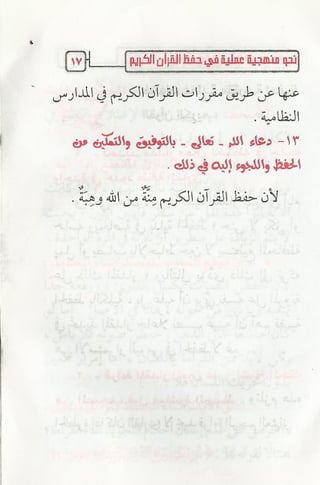 نحو منهجية عملية في حفظ القرآن الكريم
١٧
عنها عن طريق مقررات القرآن الكريم في المدارس
النظامية .
١٣- دعاء الله ـ تعالى ـ بالتوفيق والتمكين من
الحفظ واللجوء إليه في ذلك .
لأن حفظ القرآن الكريم مِنَّةٌ من الله وهِبَةٌ .